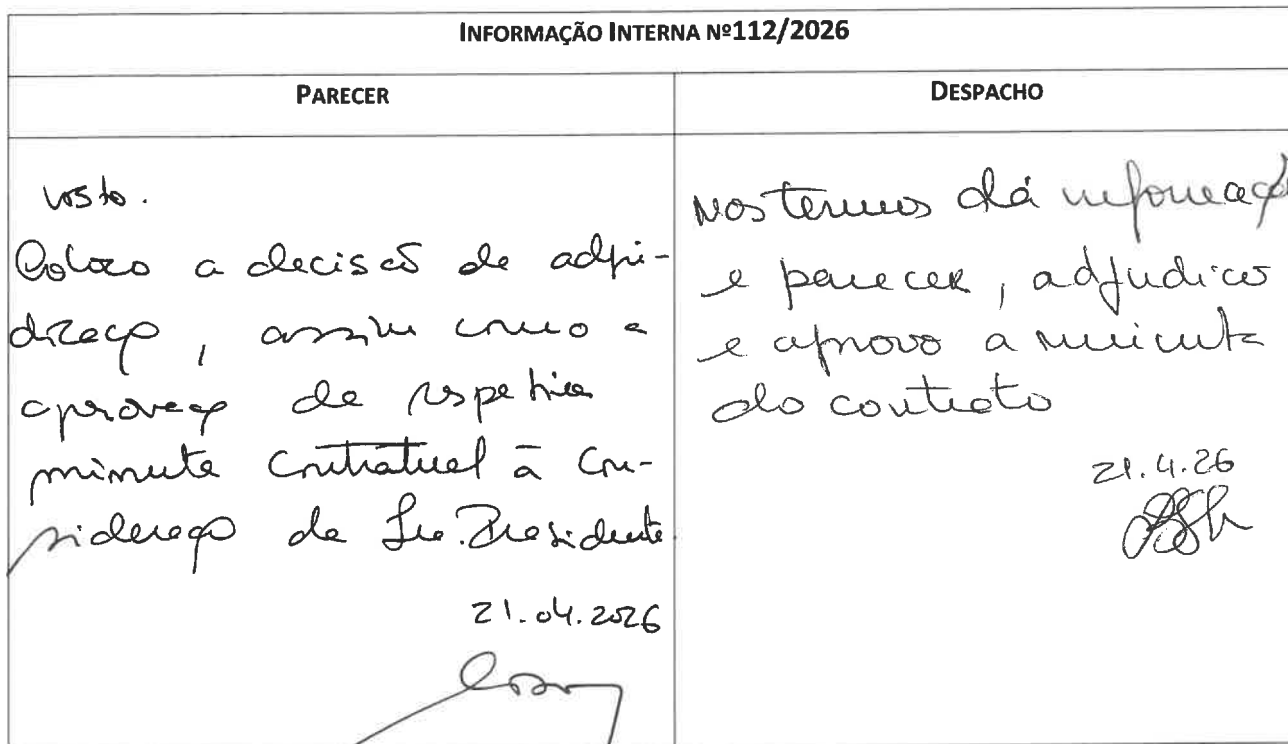 INFORMAÇÃO INTERNA Nº112/2026
PARECER
visto.
Coloco a decisão de adju-
dicação, assim como a
aprovação da respetiva
minuta contratual à con-
sideração da Sra. Presidente.
21.04.2026
DESPACHO
Nos termos da informação
e parecer, adjudico
e aprovo a minuta
do contrato
21.4.26